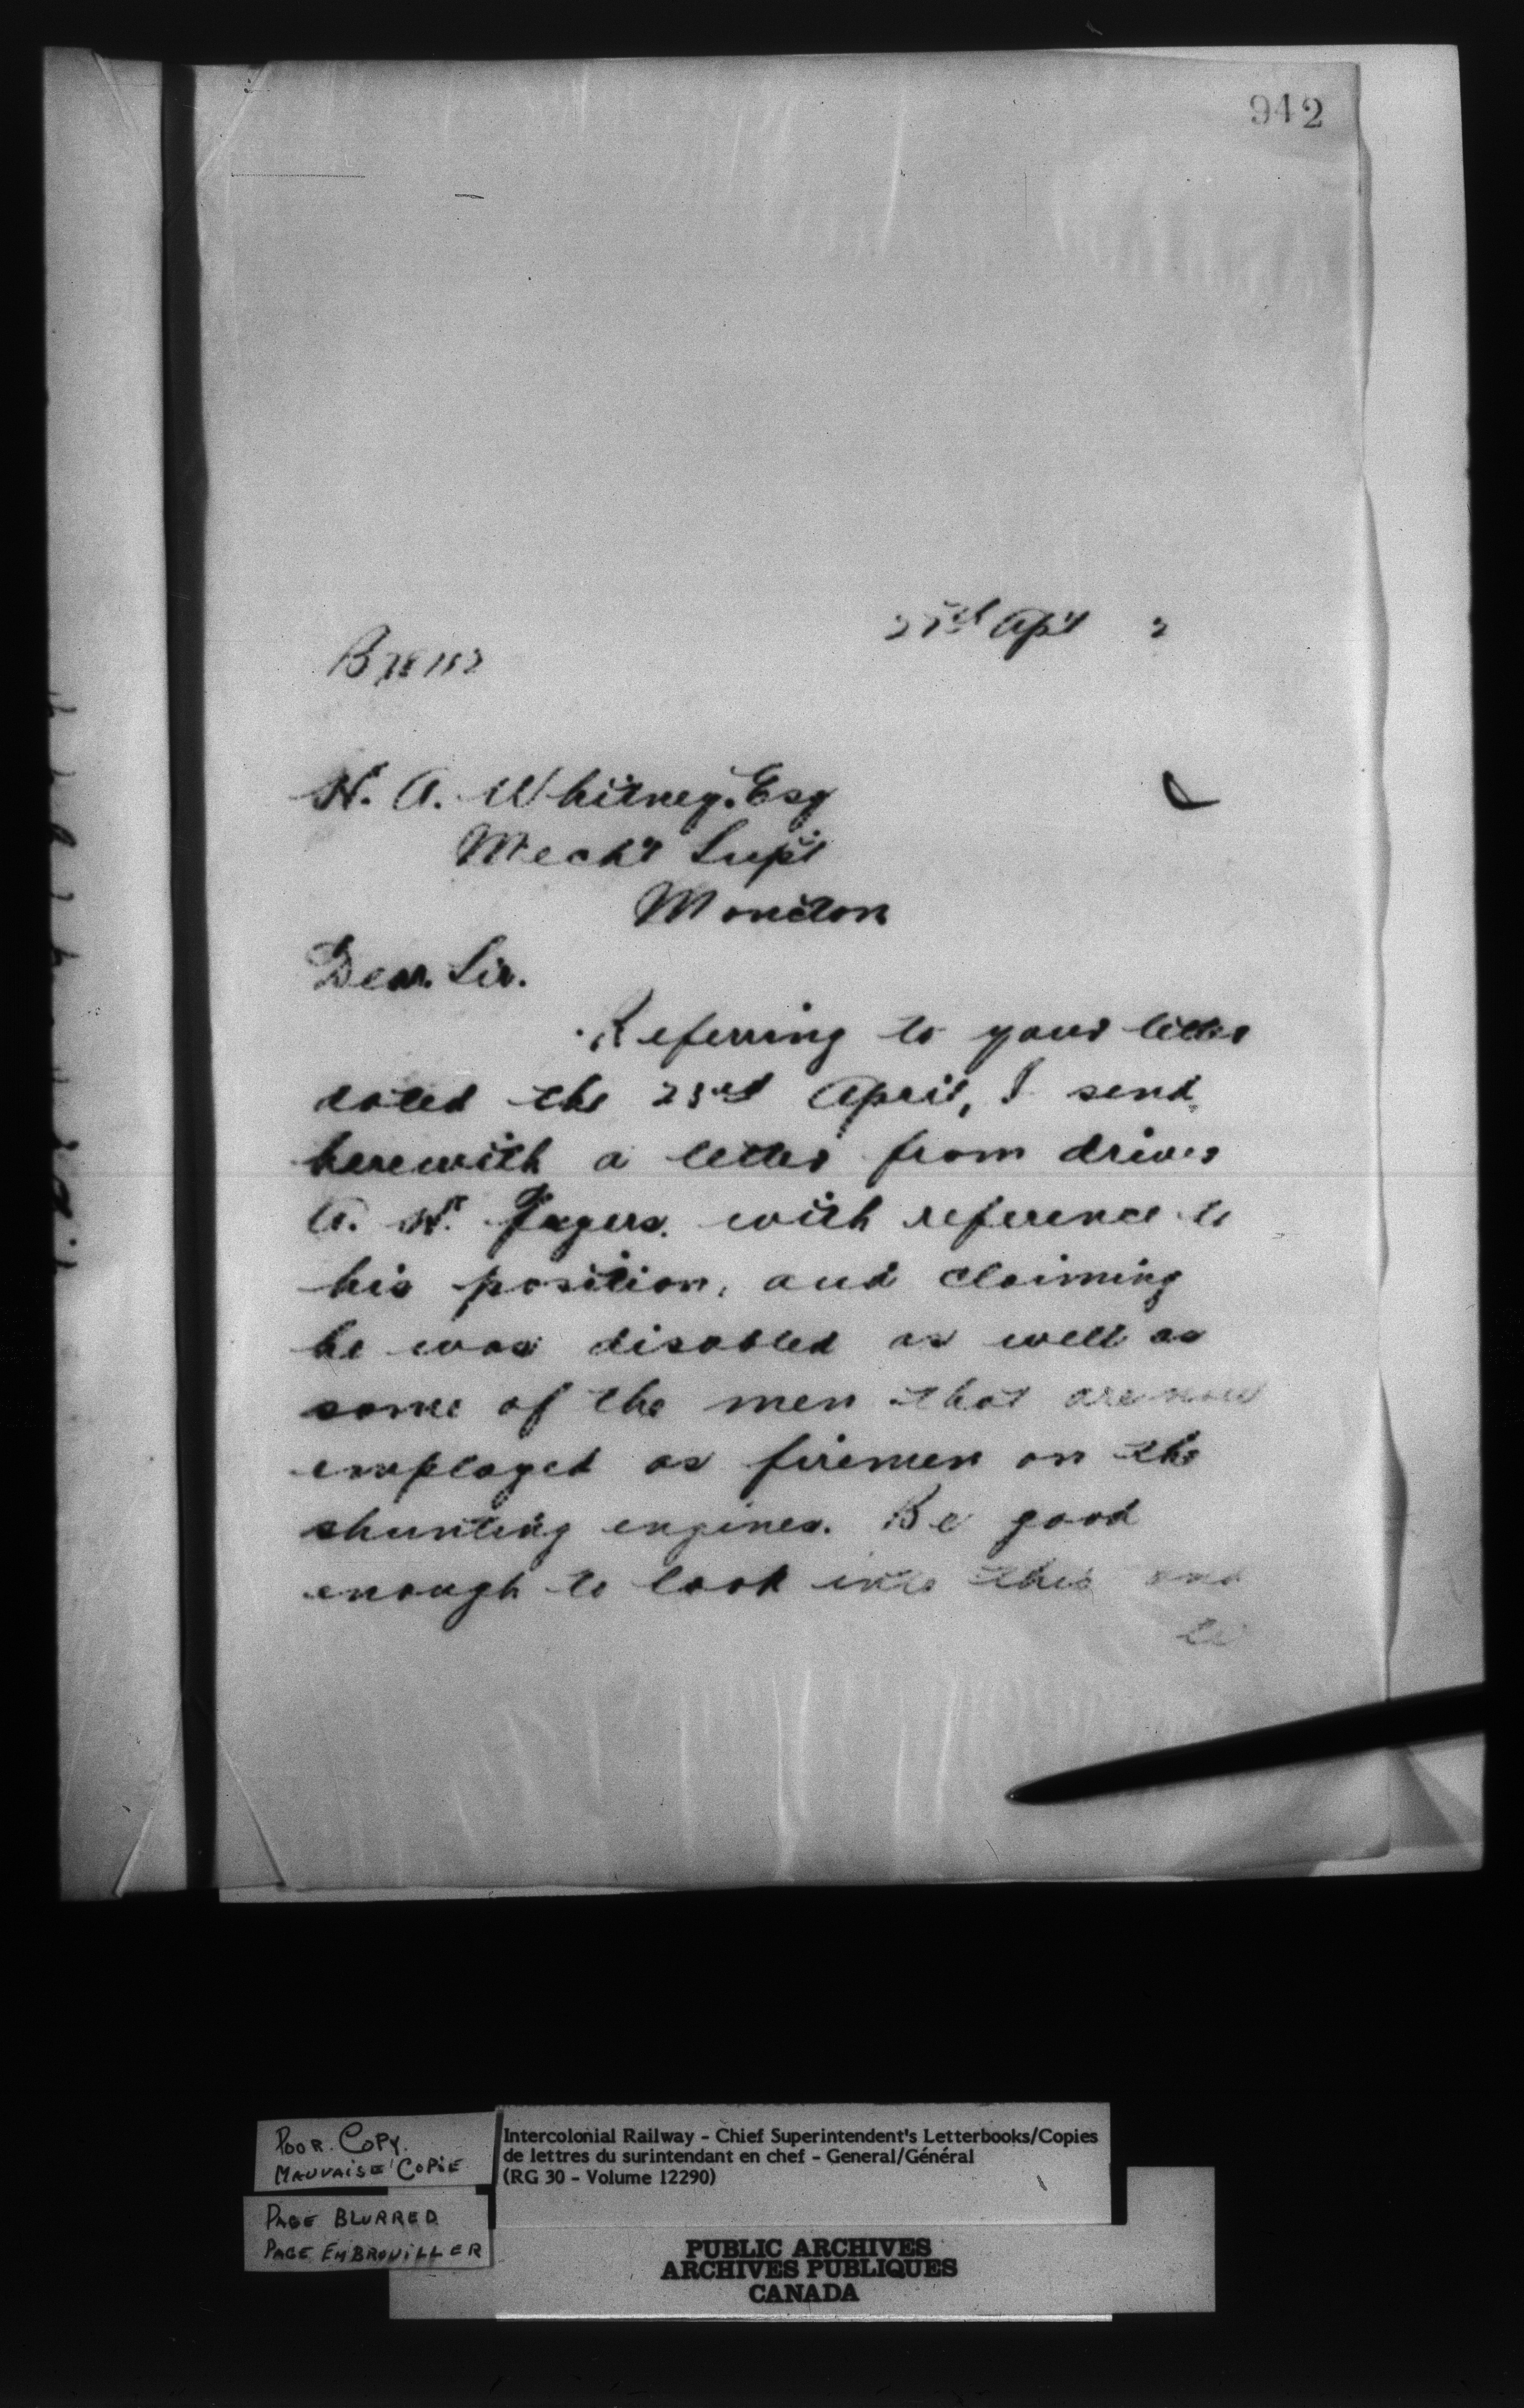 942
Apl
H. A. Whitney. Esq
Mech'l Supt
Moncton
Dear Sir.
Referring to your letter
dated the 23rd April, I send
herewith a letter from driver
A. H. with reference to
his position, and claiming
he was disabled as well as
some of the men that are now
employed as firemen on the
shunting engines. Be good
enough to look into this and
to
POOR COPY.
MAUVAISE COPIE
PAGE BLURRED
PAGE EMBROUILLER
Intercolonial Railway - Chief Superintendent's Letterbooks/Copies
de lettres du surintendant en chef - General/Général
(RG 30 - Volume 12290)
PUBLIC ARCHIVES
ARCHIVES PUBLIQUES
CANADA